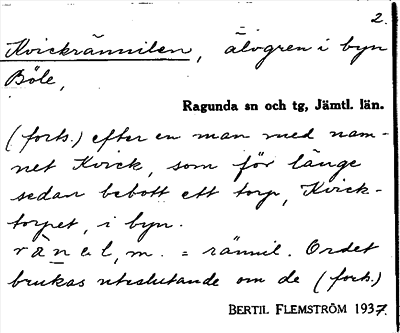 2.
Kvickrännilen, älvgren i byn
Böle,
Ragunda sn och tg, Jämtl. län.
(forts.) efter en man med nam-
net Kvick, som för länge
sedan bebott ett torp, Kvick-
torpet, i byn.
rän e l, m. = rännil. Ordet
brukas uteslutande om de (forts.)
BERTIL FLEMSTRÖM 1937.